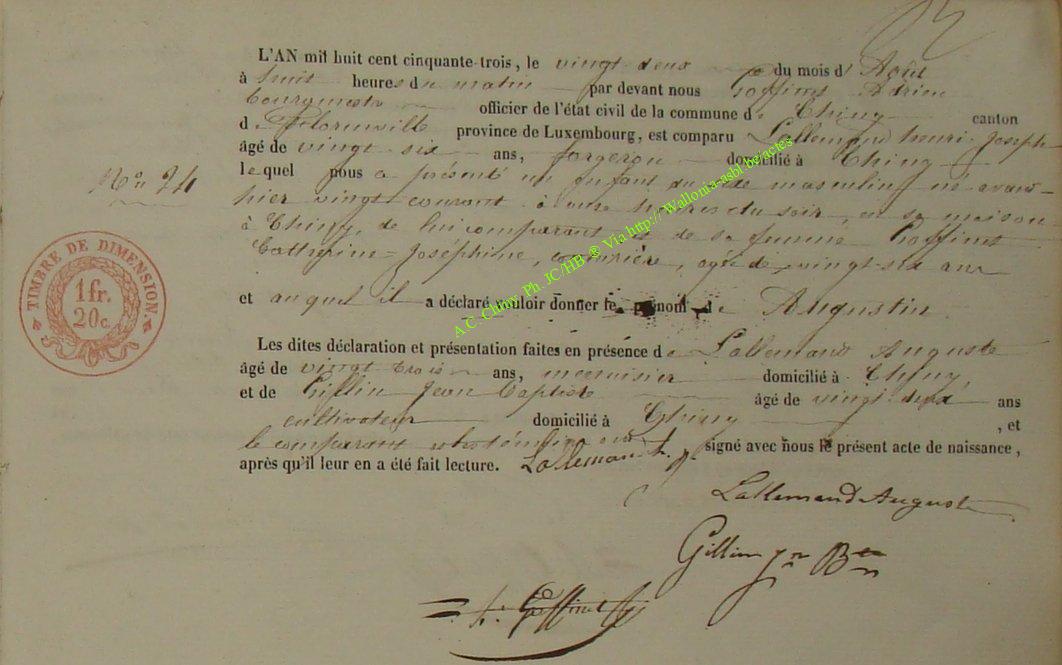 L'AN mil huit cent cinquante-trois, le vingt deux du mois d'Août
à huit heures du matin par devant nous Goffinet Adrien
bourgmestre officier de l'état civil de la commune de Chiny canton
de Florenville province de Luxembourg, est comparu Lallemand henri-Joseph
âgé de vingt six ans, forgeron domicilié à Chiny
lequel nous a présenté un Enfant du sexe masculin, né avant-
N° 24
hier vingt courant à onze heures du soir, en sa maison
à Chiny, de lui comparant et de sa femme Goffinet
Catherine-Joséphine, couturière, agée de vingt-six ans
TIMBRE DE DIMENSION.
1 fr.
20 c.
et auquel il a déclaré vouloir donner le prénom de Augustin
Les dites déclaration et présentation faites en présence de Lallemand Auguste
âgé de vingt trois ans, menuisier domicilié à Chiny,
et de Gillin Jean Baptiste âgé de vingt deux ans
cultivateur domicilié à Chiny, et
le comparant et les témoins ont signé avec nous le présent acte de naissance,
après qu'il leur en a été fait lecture. Lallemand h. J.
Lallemand Auguste
Gillin Jn Bte
A. Goffinet
A.C. Chiny Ph. JC/HB ® Via http://Wallonia-asbl.be/actes